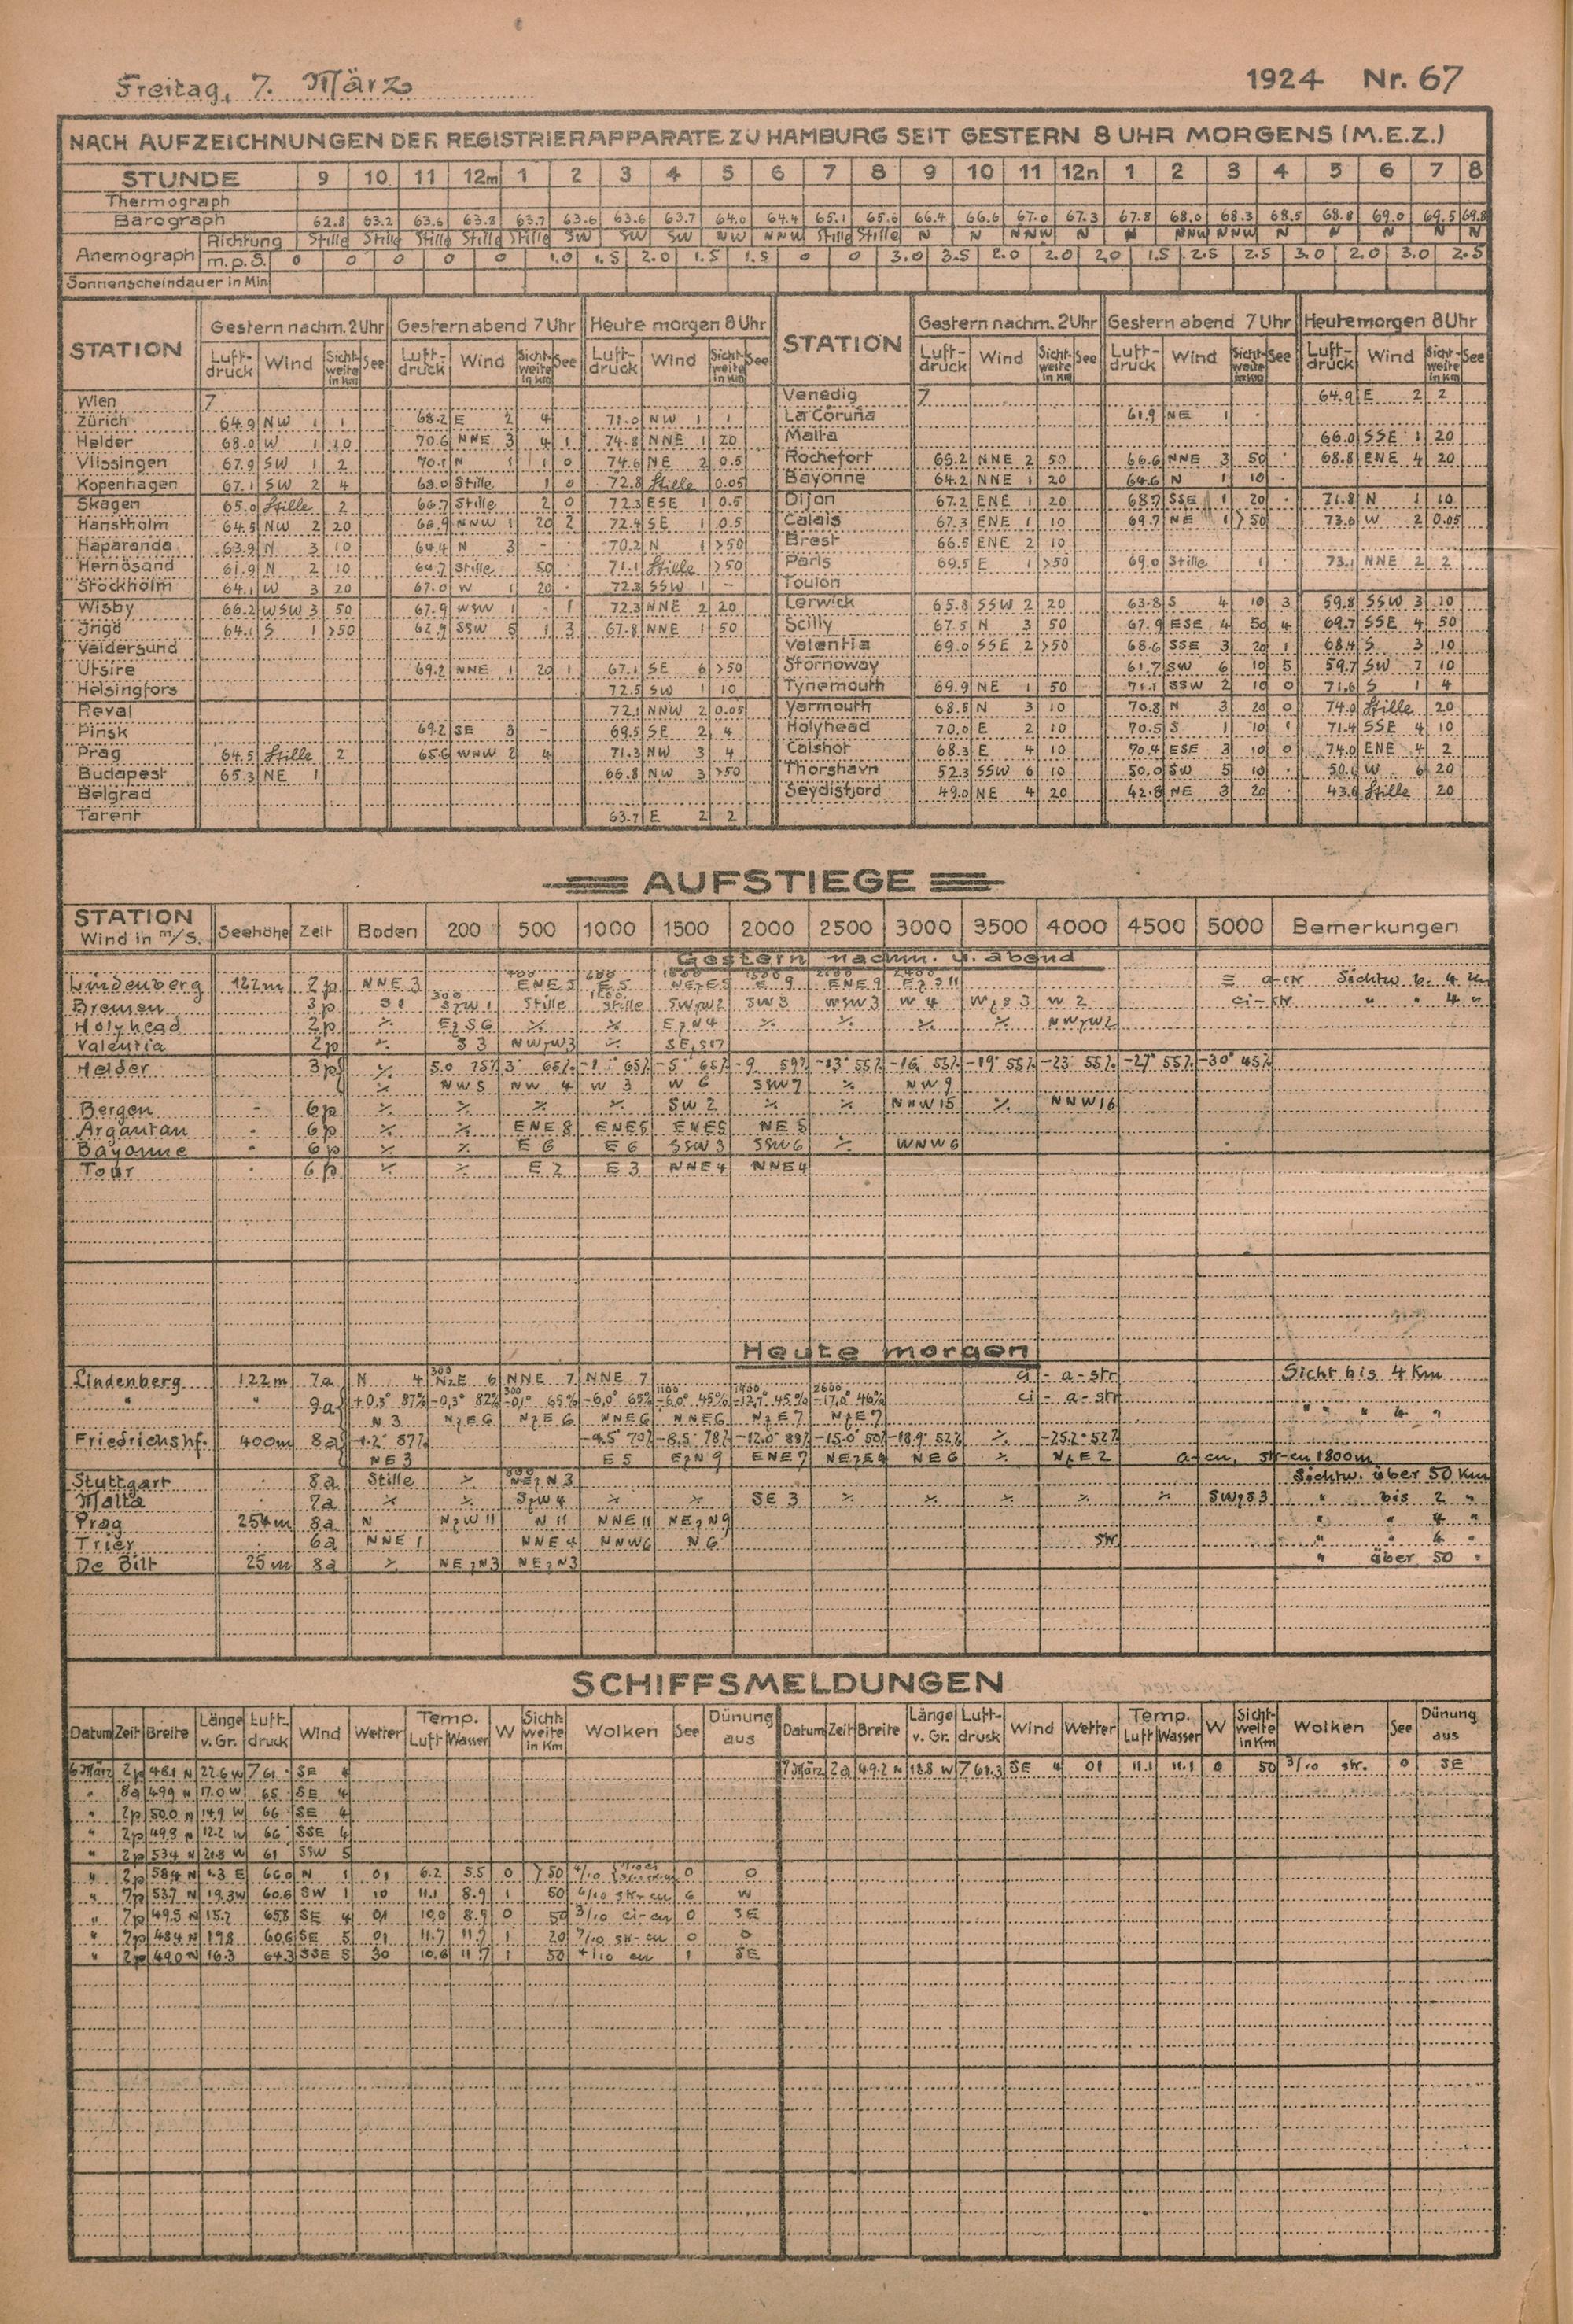 Freitag, 7. März 1924 Nr. 67
NACH AUFZEICHNUNGEN DER REGISTRIERAPPARATE ZU HAMBURG SEIT GESTERN 8 UHR MORGENS (M.E.Z.)
STUNDE 9 10 11 12m 1 2 3 4 5 6 7 8 9 10 11 12n 1 2 3 4 5 6 7 8
Thermograph
Barograph 62.8 63.2 63.6 63.8 63.7 63.6 63.6 63.7 64.0 64.4 65.1 65.6 66.4 66.6 67.0 67.3 67.8 68.0 68.3 68.5 68.8 69.0 69.5 69.8
Anemograph Richtung Stille Stille Stille Stille Stille SW SW SW NW NNW Stille Stille N N NNW N N NNW NNW N N N N N
m.p.S. 0 0 0 0 0 1.0 1.5 2.0 1.5 1.5 0 0 3.0 3.5 2.0 2.0 2.0 1.5 2.5 2.5 3.0 2.0 3.0 2.5
Sonnenscheindauer in Min
STATION Gestern nachm. 2 Uhr Gestern abend 7 Uhr Heute morgen 8 Uhr STATION Gestern nachm. 2 Uhr Gestern abend 7 Uhr Heute morgen 8 Uhr
Luft-druck Wind Sicht-weite in Km See Luft-druck Wind Sicht-weite in Km See Luft-druck Wind Sicht-weite in Km See Luft-druck Wind Sicht-weite in Km See Luft-druck Wind Sicht-weite in Km See Luft-druck Wind Sicht-weite in Km See
Wien 7 Venedig 7 64.9 E 2 2
Zürich 64.9 NW 1 1 68.2 E 2 4 71.0 NW 1 1 La Coruña 61.9 NE 1
Helder 68.0 W 1 20 70.6 NNE 3 4 1 74.8 NNE 1 20 Malta 66.0 SSE 1 20
Vlissingen 67.9 SW 1 2 70.1 N 1 1 0 74.6 NE 2 0.5 Rochefort 65.2 NNE 2 50 66.6 NNE 3 50 68.8 ENE 4 20
Kopenhagen 67.1 SW 2 4 Stille 1 0 72.8 Stille 0.05 Bayonne 64.2 NNE 1 20 64.6 N 1 10
Skagen 65.0 Stille 2 66.7 Stille 2 0 72.3 ESE 1 0.5 Dijon 67.2 ENE 1 20 68.7 SSE 1 20 71.8 N 1 10
Hanstholm 64.5 NW 2 20 66.9 NNW 1 20 2 72.4 SE 1 0.5 Calais 67.3 ENE 1 10 69.7 NE 1 >50 73.6 W 2 0.05
Haparanda 63.9 N 3 10 64.4 N 3 - 70.2 N 1 >50 Brest 66.5 ENE 2 10
Hernösand 61.9 N 2 10 Stille 50 71.1 Stille >50 Paris 69.5 E 1 >50 69.0 Stille 1 73.1 NNE 2 2
Stockholm 64.1 W 3 20 67.0 W 1 20 72.3 SSW 1 - Toulon
Wisby 66.2 WSW 3 50 67.9 WSW 1 1 72.3 NNE 2 20 Lerwick 65.8 SSW 2 20 63.8 S 4 10 3 59.8 SSW 3 10
Ingö 64.1 S 1 >50 62.9 SSW 5 1 3 67.8 NNE 1 50 Scilly 67.5 N 3 50 67.9 ESE 4 50 4 69.7 SSE 4 50
Valdersund Valentia 69.0 SSE 2 >50 68.6 SSE 3 20 1 68.4 S 3 10
Utsire 69.2 NNE 1 20 1 67.1 SE 6 >50 Stornoway 61.7 SW 6 10 5 59.7 SW 7 10
Helsingfors 72.5 SW 1 10 Tynemouth 69.9 NE 1 50 71.1 SSW 2 10 0 71.6 S 1 4
Reval 72.1 NNW 2 0.05 Yarmouth 68.5 N 3 10 70.8 N 3 20 0 74.0 Stille 20
Pinsk 69.2 SE 3 - 69.5 SE 2 4 Holyhead 70.0 E 2 10 70.5 S 1 10 1 71.4 SSE 4 10
Prag 64.5 Stille 2 65.6 WNW 2 4 71.3 NW 3 4 Calshot 68.3 E 4 10 70.4 ESE 3 10 0 74.0 ENE 4 2
Budapest 65.3 NE 1 66.8 NW 3 >50 Thorshavn 52.3 SSW 6 10 50.0 SW 5 10 W 6 20
Belgrad Seydisfjord 49.0 NE 4 20 42.8 NE 3 20 43.6 Stille 20
Tarent 63.7 E 2 2
AUFSTIEGE
STATION Wind in m/S. Seehöhe Zeit Boden 200 500 1000 1500 2000 2500 3000 3500 4000 4500 5000 Bemerkungen
Gestern nachm. u. abend
Lindenberg 122m 2p NNE 3 ENE 5 E 5 E 9 ENE 9 a-cu Sichtw. b. 4 Km
Bremen 3p Stille Stille SW 3 WSW 3 W 4 W 2 ci-str " " 4 "
Holyhead 2p % % % % % % %
Valentia 2p % S 3 %
Helder 3p % 5.0 75% 3° 65% -1° 65% -5° 65% -9 59% -13° 55% -16 55% -19° 55% -23 55% -27° 55% -30° 45%
% NW 5 NW 4 W 3 W 6 SSW 7 % NW 9
Bergen - 6p % % % % SW 2 % % NNW 15 % NNW 16
Argantan - 6p % % ENE 8 ENE 5 ENE 5 NE 5
Bayonne 6p % % E 6 E 6 SSW 3 SSW 6 % WNW 6
Tour 6p % % E 2 E 3 NNE 4 NNE 4
Heute morgen
Lindenberg 122m 7a N 4 NzE 6 NNE 7 NNE 7 ci - a-str Sicht bis 4 Km
" " 9a +0,3° 87% -0,3° 82% -0,1° 65% -6,0° 65% 45% 45% -17,0° 46% ci - a-str
N 3 NzE 6 NzE 6 NNE 6 NNE 6 NzE 7 NzE 7 " " " 4 "
Friedrichshf. 400m 8a -1.2° 87% -4.5° 70% -8.5 78% -12.0° 89% -15.0° 50% -18.9° 52% % -25.2° 52%
NE 3 E 5 EzN 9 ENE 7 NE 6 % NzE 2 a-cu, str-cu 1800m
Stuttgart 8a Stille % NEzN 3 Sichtw. über 50 Km
Malta 7a % % SzW 4 % % SE 3 % % % % % " bis 2 "
Prag 254m 8a N NzW 11 N 11 NNE 11 NEzN 9 " " 4 "
Trier 6a NNE 1 NNE 4 NNW 6 N 6 str " " 6 "
De Bilt 25m 8a % NEzN3 NEzN3 " über 50 "
SCHIFFSMELDUNGEN
Datum Zeit Breite Länge v. Gr. Luft-druck Wind Wetter Temp. Luft Wasser W Sicht-weite in Km Wolken See Dünung aus Datum Zeit Breite Länge v. Gr. Luft-druck Wind Wetter Temp. Luft Wasser W Sicht-weite in Km Wolken See Dünung aus
6 März 2p 48.1 N 22.6 W 761 SE 4 7 März 2a 49.2 N 18.8 W 761.3 SE 4 01 11.1 11.1 0 50 3/10 str. 0 SE
" 8a 49.9 N 17.0 W 65 SE 4
" 2p 50.0 N 14.9 W 66 SE 4
" 2p 49.8 N 12.2 W 66 SSE 4
" 2p 53.4 N 21.8 W 61 SSW 5
" 2p 58.4 N 4.3 E 66.0 N 1 01 6.2 5.5 0 >50 0 0
" 7p 53.7 N 19.3 W 60.6 SW 1 10 11.1 8.9 1 50 6/10 str-cu 6 W
" 7p 49.5 N 15.7 65.8 SE 4 01 10.0 8.9 0 50 3/10 ci-cu 0 SE
" 7p 48.4 N 19.8 60.6 SE 5 01 11.7 11.7 1 20 7/10 str-cu 0 0
" 2p 49.0 N 16.3 64.3 SSE 5 30 10.6 11.7 1 50 4/10 cu 1 SE